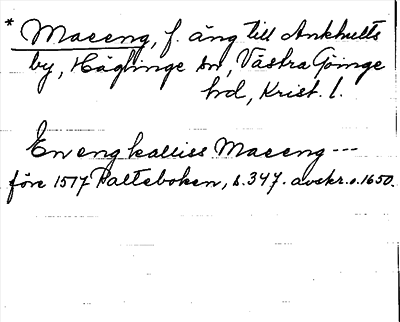 * Maeeng, f. äng till Ankhults
by, Häglinge sn, Västra Göinge
hd, Krist. l.
En eng kalliss Maeeng ---
före 1517 Palteboken, s. 347. avskr. o. 1650.